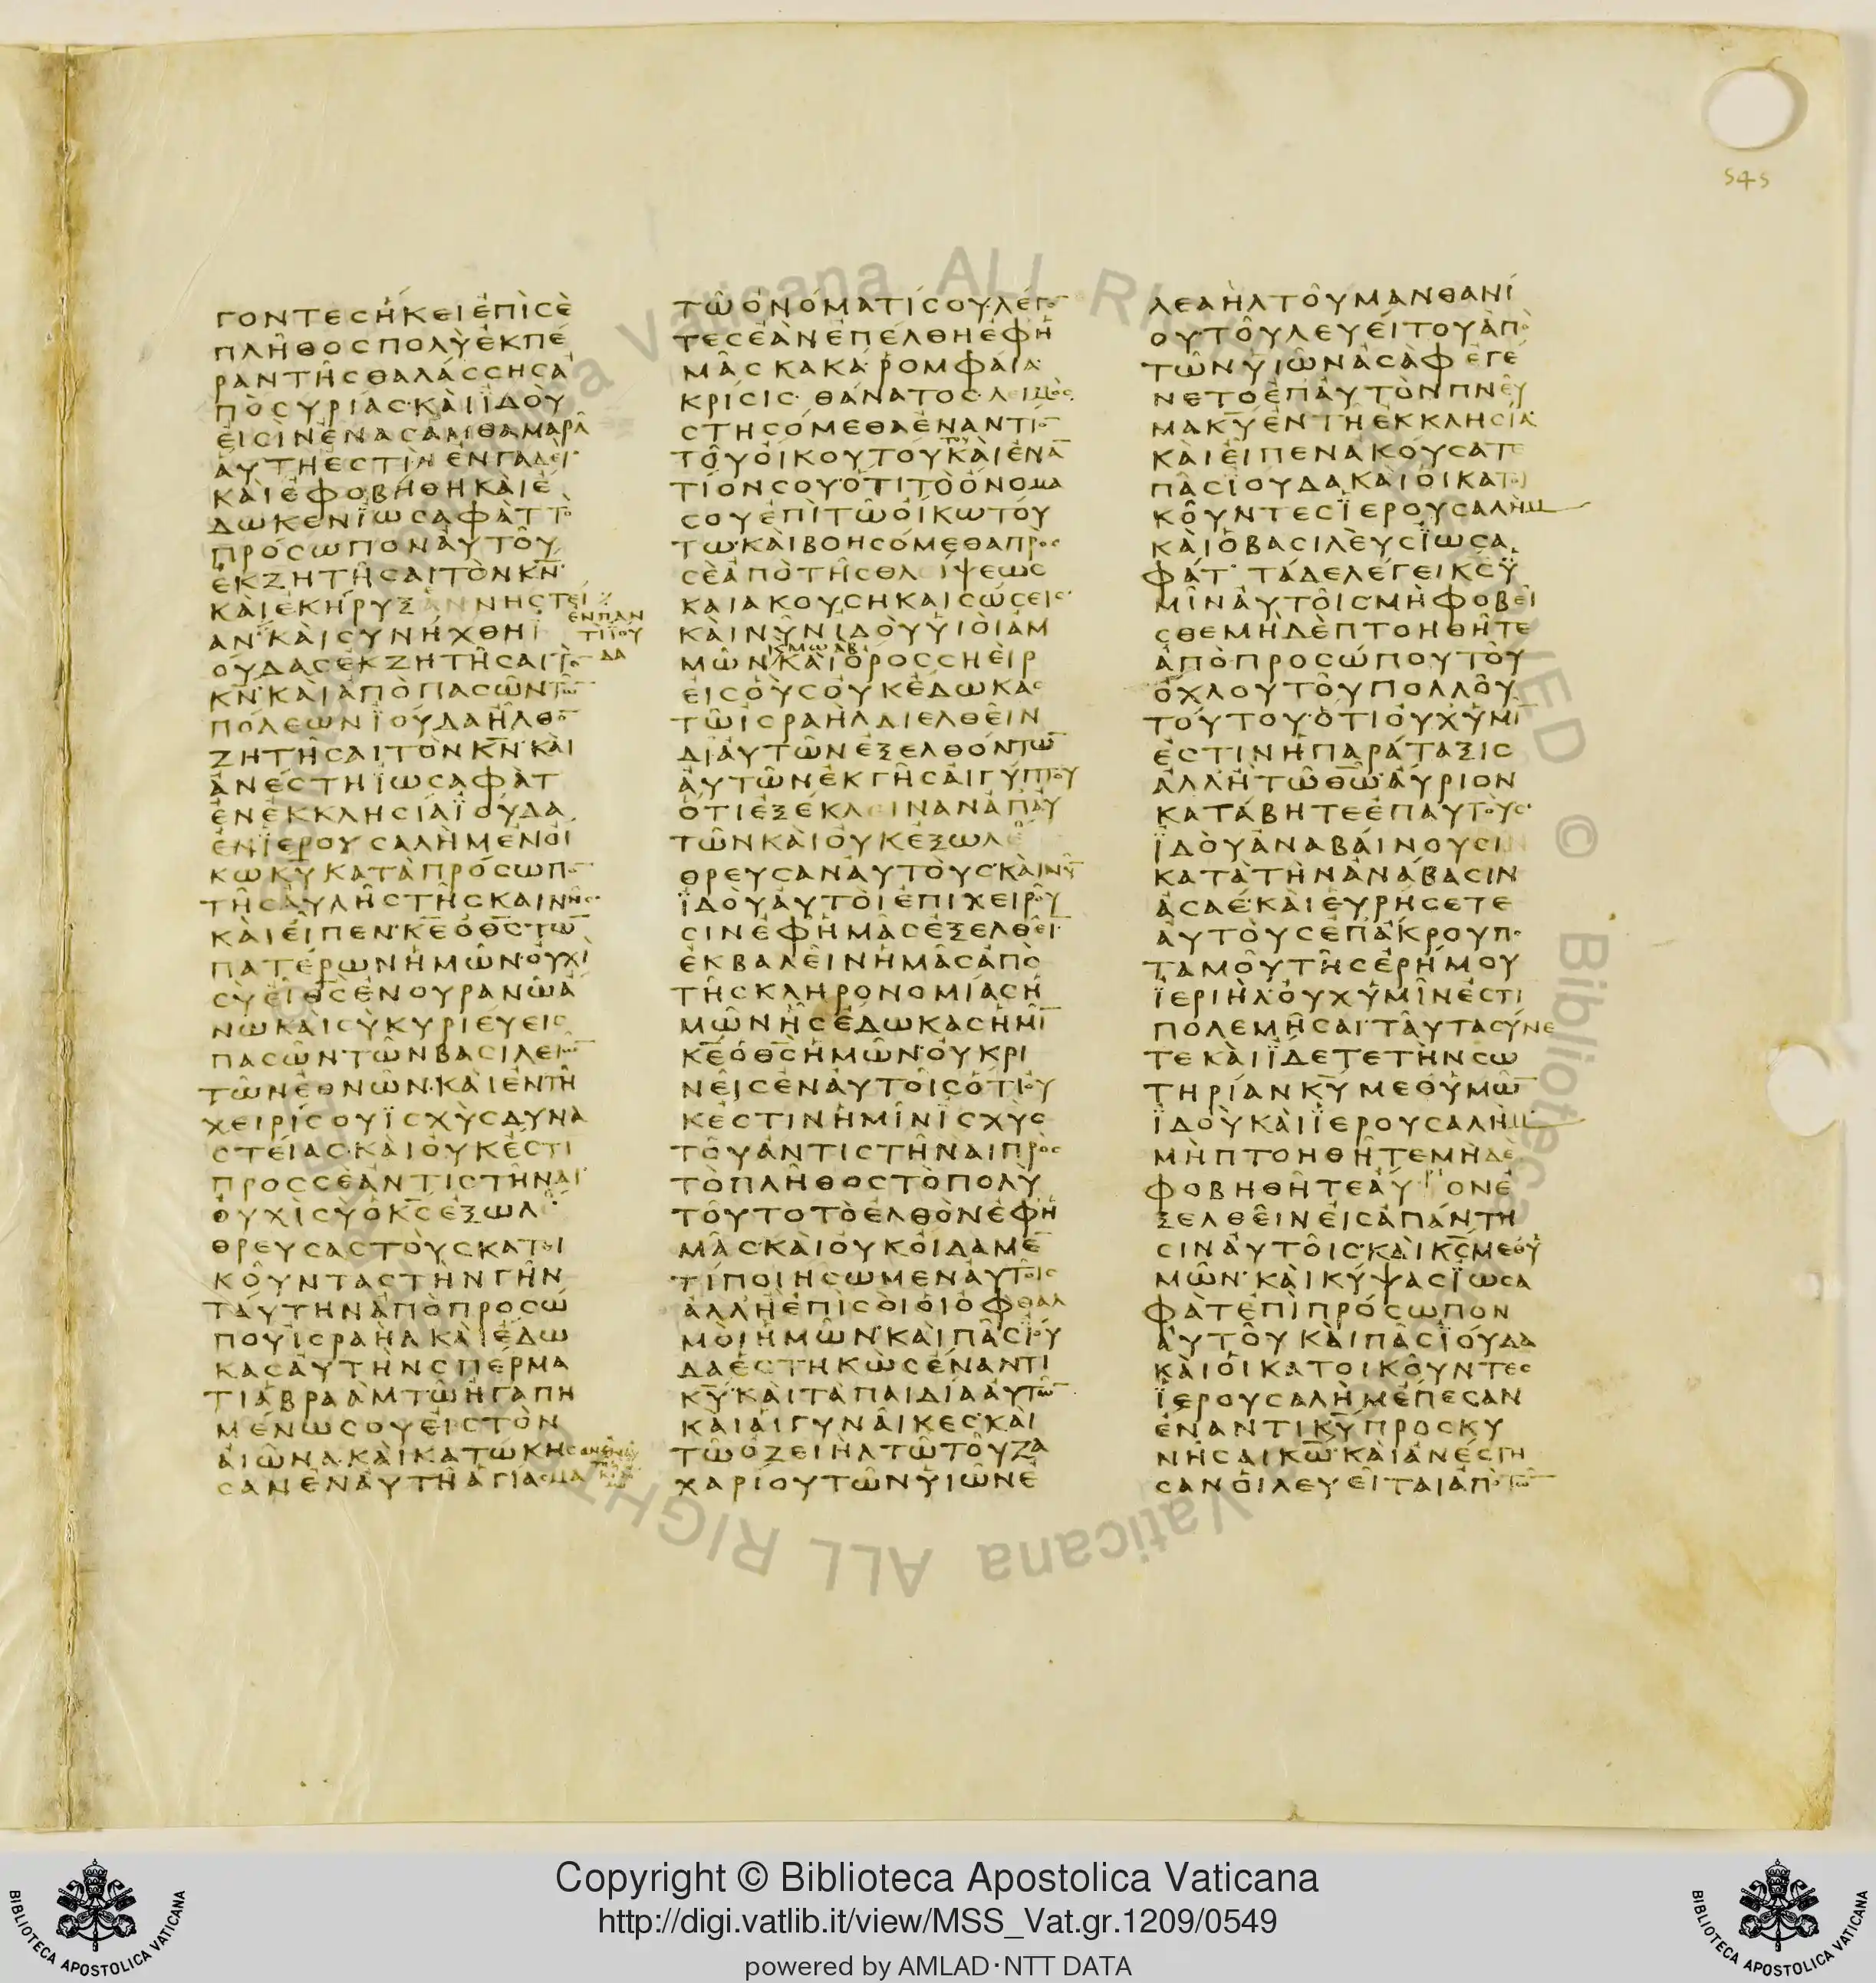 545
ΓΟΝΤΕΣ ΗΚΕΙ ΕΠΙ ΣΕ
ΠΛΗΘΟΣ ΠΟΛΥ ΕΚ ΠΕ
ΡΑΝ ΤΗΣ ΘΑΛΑΣΣΗΣ Α
ΠΟ ΣΥΡΙΑΣ ΚΑΙ ΙΔΟΥ
ΕΙΣΙΝ ΕΝ ΑΣΑΜ ΘΑΜΑΡΑ
ΑΥΤΗ ΕΣΤΙΝ ΕΝΓΑΔΕΙ
ΚΑΙ ΕΦΟΒΗΘΗ ΚΑΙ Ε
ΔΩΚΕΝ ΙΩΣΑΦΑΤ ΤΟ
ΠΡΟΣΩΠΟΝ ΑΥΤΟΥ
ΕΚΖΗΤΗΣΑΙ ΤΟΝ ΚΝ
ΚΑΙ ΕΚΗΡΥΞΑΝ ΝΗΣΤΕΙ
ΕΝ ΠΑΝ
ΑΝ ΚΑΙ ΣΥΝΗΧΘΗ Ι
ΤΙ ΙΟΥ
ΟΥΔΑΣ ΕΚΖΗΤΗΣΑΙ ΤΟ
ΔΑ
ΚΝ ΚΑΙ ΑΠΟ ΠΑΣΩΝ ΤΩ
ΠΟΛΕΩΝ ΙΟΥΔΑ ΗΛΘΟ
ΖΗΤΗΣΑΙ ΤΟΝ ΚΝ ΚΑΙ
ΑΝΕΣΤΗ ΙΩΣΑΦΑΤ
ΕΝ ΕΚΚΛΗΣΙΑ ΙΟΥΔΑ
ΕΝ ΙΕΡΟΥΣΑΛΗΜ ΕΝ ΟΙ
ΚΩ ΚΥ ΚΑΤΑ ΠΡΟΣΩΠΟ
ΤΗΣ ΑΥΛΗΣ ΤΗΣ ΚΑΙΝΗΣ
ΚΑΙ ΕΙΠΕΝ ΚΕ Ο ΘΣ ΤΩ
ΠΑΤΕΡΩΝ ΗΜΩΝ ΟΥΧΙ
ΣΥ ΕΙ ΘΣ ΕΝ ΟΥΡΑΝΩ Α
ΝΩ ΚΑΙ ΣΥ ΚΥΡΙΕΥΕΙΣ
ΠΑΣΩΝ ΤΩΝ ΒΑΣΙΛΕΙΩ
ΤΩΝ ΕΘΝΩΝ ΚΑΙ ΕΝ ΤΗ
ΧΕΙΡΙ ΣΟΥ ΙΣΧΥΣ ΔΥΝΑ
ΣΤΕΙΑΣ ΚΑΙ ΟΥΚ ΕΣΤΙ
ΠΡΟΣ ΣΕ ΑΝΤΙΣΤΗΝΑΙ
ΟΥΧΙ ΣΥ Ο ΚΣ ΕΞΩΛΟ
ΘΡΕΥΣΑΣ ΤΟΥΣ ΚΑΤΟΙ
ΚΟΥΝΤΑΣ ΤΗΝ ΓΗΝ
ΤΑΥΤΗΝ ΑΠΟ ΠΡΟΣΩ
ΠΟΥ ΙΣΡΑΗΛ ΚΑΙ ΕΔΩ
ΚΑΣ ΑΥΤΗΝ ΣΠΕΡΜΑ
ΤΙ ΑΒΡΑΑΜ ΤΩ ΗΓΑΠΗ
ΜΕΝΩ ΣΟΥ ΕΙΣ ΤΟΝ
ΑΙΩΝΑ ΚΑΙ ΚΑΤΩΚΗΣ
ΣΑΝ ΕΝ ΑΥΤΗ ΑΓΙΑΣΜΑ
ΤΩ ΟΝΟΜΑΤΙ ΣΟΥ ΛΕΓΟ
ΤΕΣ ΕΑΝ ΕΠΕΛΘΗ ΕΦ Η
ΜΑΣ ΚΑΚΑ ΡΟΜΦΑΙΑ
ΚΡΙΣΙΣ ΘΑΝΑΤΟΣ ΛΕΙΜΟΣ
ΣΤΗΣΟΜΕΘΑ ΕΝΑΝΤΙΟ
ΤΟΥ ΟΙΚΟΥ ΤΟΥΤΟΥ ΚΑΙ ΕΝΑ
ΤΙΟΝ ΣΟΥ ΟΤΙ ΤΟ ΟΝΟΜΑ
ΣΟΥ ΕΠΙ ΤΩ ΟΙΚΩ ΤΟΥ
ΤΩ ΚΑΙ ΒΟΗΣΟΜΕΘΑ ΠΡΟΣ
ΣΕ ΑΠΟ ΤΗΣ ΘΛΕΙΨΕΩΣ
ΚΑΙ ΑΚΟΥΣΗ ΚΑΙ ΣΩΣΕΙΣ
ΚΑΙ ΝΥΝ ΙΔΟΥ ΥΙΟΙ ΑΜ
Κ ΜΩΑΒ
ΜΩΝ ΚΑΙ ΟΡΟΣ ΣΗΕΙΡ
ΕΙΣ ΟΥΣ ΟΥΚ ΕΔΩΚΑΣ
ΤΩ ΙΣΡΑΗΛ ΔΙΕΛΘΕΙΝ
ΔΙ ΑΥΤΩΝ ΕΞΕΛΘΟΝΤΩ
ΑΥΤΩΝ ΕΚ ΓΗΣ ΑΙΓΥΠΤΟΥ
ΟΤΙ ΕΞΕΚΛΕΙΝΑΝ ΑΠ ΑΥ
ΤΩΝ ΚΑΙ ΟΥΚ ΕΞΩΛΕ
ΘΡΕΥΣΑΝ ΑΥΤΟΥΣ ΚΑΙ ΝΥ
ΙΔΟΥ ΑΥΤΟΙ ΕΠΙΧΕΙΡΟΥ
ΣΙΝ ΕΦ ΗΜΑΣ ΕΞΕΛΘΕΙ
ΕΚΒΑΛΕΙΝ ΗΜΑΣ ΑΠΟ
ΤΗΣ ΚΛΗΡΟΝΟΜΙΑΣ Η
ΜΩΝ ΗΣ ΕΔΩΚΑΣ ΗΜΙ
ΚΕ Ο ΘΣ ΗΜΩΝ ΟΥ ΚΡΙ
ΝΕΙΣ ΕΝ ΑΥΤΟΙΣ ΟΤΙ ΟΥ
Κ ΕΣΤΙΝ ΗΜΙΝ ΙΣΧΥΣ
ΤΟΥ ΑΝΤΙΣΤΗΝΑΙ ΠΡΟΣ
ΤΟ ΠΛΗΘΟΣ ΤΟ ΠΟΛΥ
ΤΟΥΤΟ ΤΟ ΕΛΘΟΝ ΕΦ Η
ΜΑΣ ΚΑΙ ΟΥΚ ΟΙΔΑΜΕ
ΤΙ ΠΟΙΗΣΩΜΕΝ ΑΥΤΟΙΣ
ΑΛΛ Η ΕΠΙ ΣΟΙ ΟΙ ΟΦΘΑΛ
ΜΟΙ ΗΜΩΝ ΚΑΙ ΠΑΣ ΙΟΥ
ΔΑ ΕΣΤΗΚΩΣ ΕΝΑΝΤΙ
ΚΥ ΚΑΙ ΤΑ ΠΑΙΔΙΑ ΑΥΤΩ
ΚΑΙ ΑΙ ΓΥΝΑΙΚΕΣ ΚΑΙ
ΤΩ ΟΖΕΙΗΛ ΤΩ ΤΟΥ ΖΑ
ΧΑΡΙΟΥ ΤΩΝ ΥΙΩΝ Ε
ΛΕΑΗΛ ΤΟΥ ΜΑΝΘΑΝΙ
ΟΥ ΤΟΥ ΛΕΥΕΙΤΟΥ ΑΠΟ
ΤΩΝ ΥΙΩΝ ΑΣΑΦ ΕΓΕ
ΝΕΤΟ ΕΠ ΑΥΤΟΝ ΠΝΕΥ
ΜΑ ΚΥ ΕΝ ΤΗ ΕΚΚΛΗΣΙΑ
ΚΑΙ ΕΙΠΕΝ ΑΚΟΥΣΑΤΕ
ΠΑΣ ΙΟΥΔΑ ΚΑΙ ΟΙ ΚΑΤΟΙ
ΚΟΥΝΤΕΣ ΙΕΡΟΥΣΑΛΗΜ
ΚΑΙ Ο ΒΑΣΙΛΕΥΣ ΙΩΣΑ
ΦΑΤ ΤΑΔΕ ΛΕΓΕΙ ΚΣ Υ
ΜΙΝ ΑΥΤΟΙΣ ΜΗ ΦΟΒΕΙ
ΣΘΕ ΜΗΔΕ ΠΤΟΗΘΗΤΕ
ΑΠΟ ΠΡΟΣΩΠΟΥ ΤΟΥ
ΟΧΛΟΥ ΤΟΥ ΠΟΛΛΟΥ
ΤΟΥΤΟΥ ΟΤΙ ΟΥΧ ΥΜΙ
ΕΣΤΙΝ Η ΠΑΡΑΤΑΞΙΣ
ΑΛΛ Η ΤΩ ΘΩ ΑΥΡΙΟΝ
ΚΑΤΑΒΗΤΕ ΕΠ ΑΥΤΟΥΣ
ΙΔΟΥ ΑΝΑΒΑΙΝΟΥΣΙΝ
ΚΑΤΑ ΤΗΝ ΑΝΑΒΑΣΙΝ
ΑΣΑΕ ΚΑΙ ΕΥΡΗΣΕΤΕ
ΑΥΤΟΥΣ ΕΠ ΑΚΡΟΥ ΠΟ
ΤΑΜΟΥ ΤΗΣ ΕΡΗΜΟΥ
ΙΕΡΙΗΛ ΟΥΧ ΥΜΙΝ ΕΣΤΙ
ΠΟΛΕΜΗΣΑΙ ΤΑΥΤΑ ΣΥΝΕ
ΤΕ ΚΑΙ ΙΔΕΤΕ ΤΗΝ ΣΩ
ΤΗΡΙΑΝ ΚΥ ΜΕΘ ΥΜΩ
ΙΔΟΥ ΚΑΙ ΙΕΡΟΥΣΑΛΗΜ
ΜΗ ΠΤΟΗΘΗΤΕ ΜΗΔΕ
ΦΟΒΗΘΗΤΕ ΑΥΡΙΟΝ Ε
ΞΕΛΘΕΙΝ ΕΙΣ ΑΠΑΝΤΗ
ΣΙΝ ΑΥΤΟΙΣ ΚΑΙ ΚΣ ΜΕΘ Υ
ΜΩΝ ΚΑΙ ΚΥΨΑΣ ΙΩΣΑ
ΦΑΤ ΕΠΙ ΠΡΟΣΩΠΟΝ
ΑΥΤΟΥ ΚΑΙ ΠΑΣ ΙΟΥΔΑ
ΚΑΙ ΟΙ ΚΑΤΟΙΚΟΥΝΤΕΣ
ΙΕΡΟΥΣΑΛΗΜ ΕΠΕΣΑΝ
ΕΝΑΝΤΙ ΚΥ ΠΡΟΣΚΥ
ΝΗΣΑΙ ΚΩ ΚΑΙ ΑΝΕΣΤΗ
ΣΑΝ ΟΙ ΛΕΥΕΙΤΑΙ ΑΠΟ ΤΩ
Copyright © Biblioteca Apostolica Vaticana
http://digi.vatlib.it/view/MSS_Vat.gr.1209/0549
powered by AMLAD·NTT DATA
BIBLIOTECA APOSTOLICA VATICANA
BIBLIOTECA APOSTOLICA VATICANA